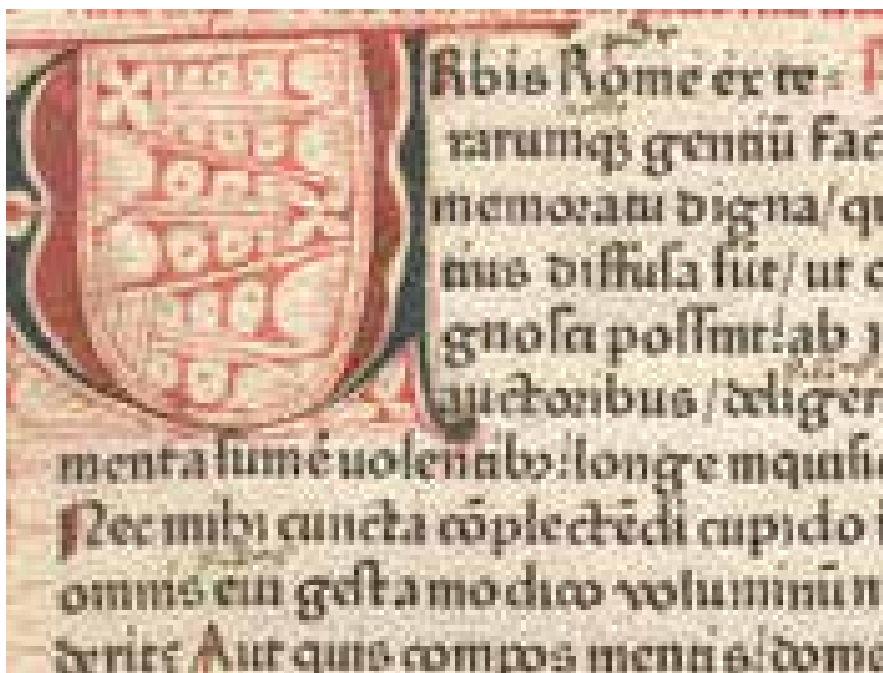 URbis Rome exte=
rarumqꝫ gentiū Fac
memoratu digna/ qu
tius diffusa sūt/ ut c
gnosci possint: ab
auctoribus/ deliger
menta sumé uolentibꝰ: longe inquisi
Nec mihi cuncta cōplectēdi cupido i
omnis eui gesta modico voluminū n
derit? Aut quis compos mentis: dome